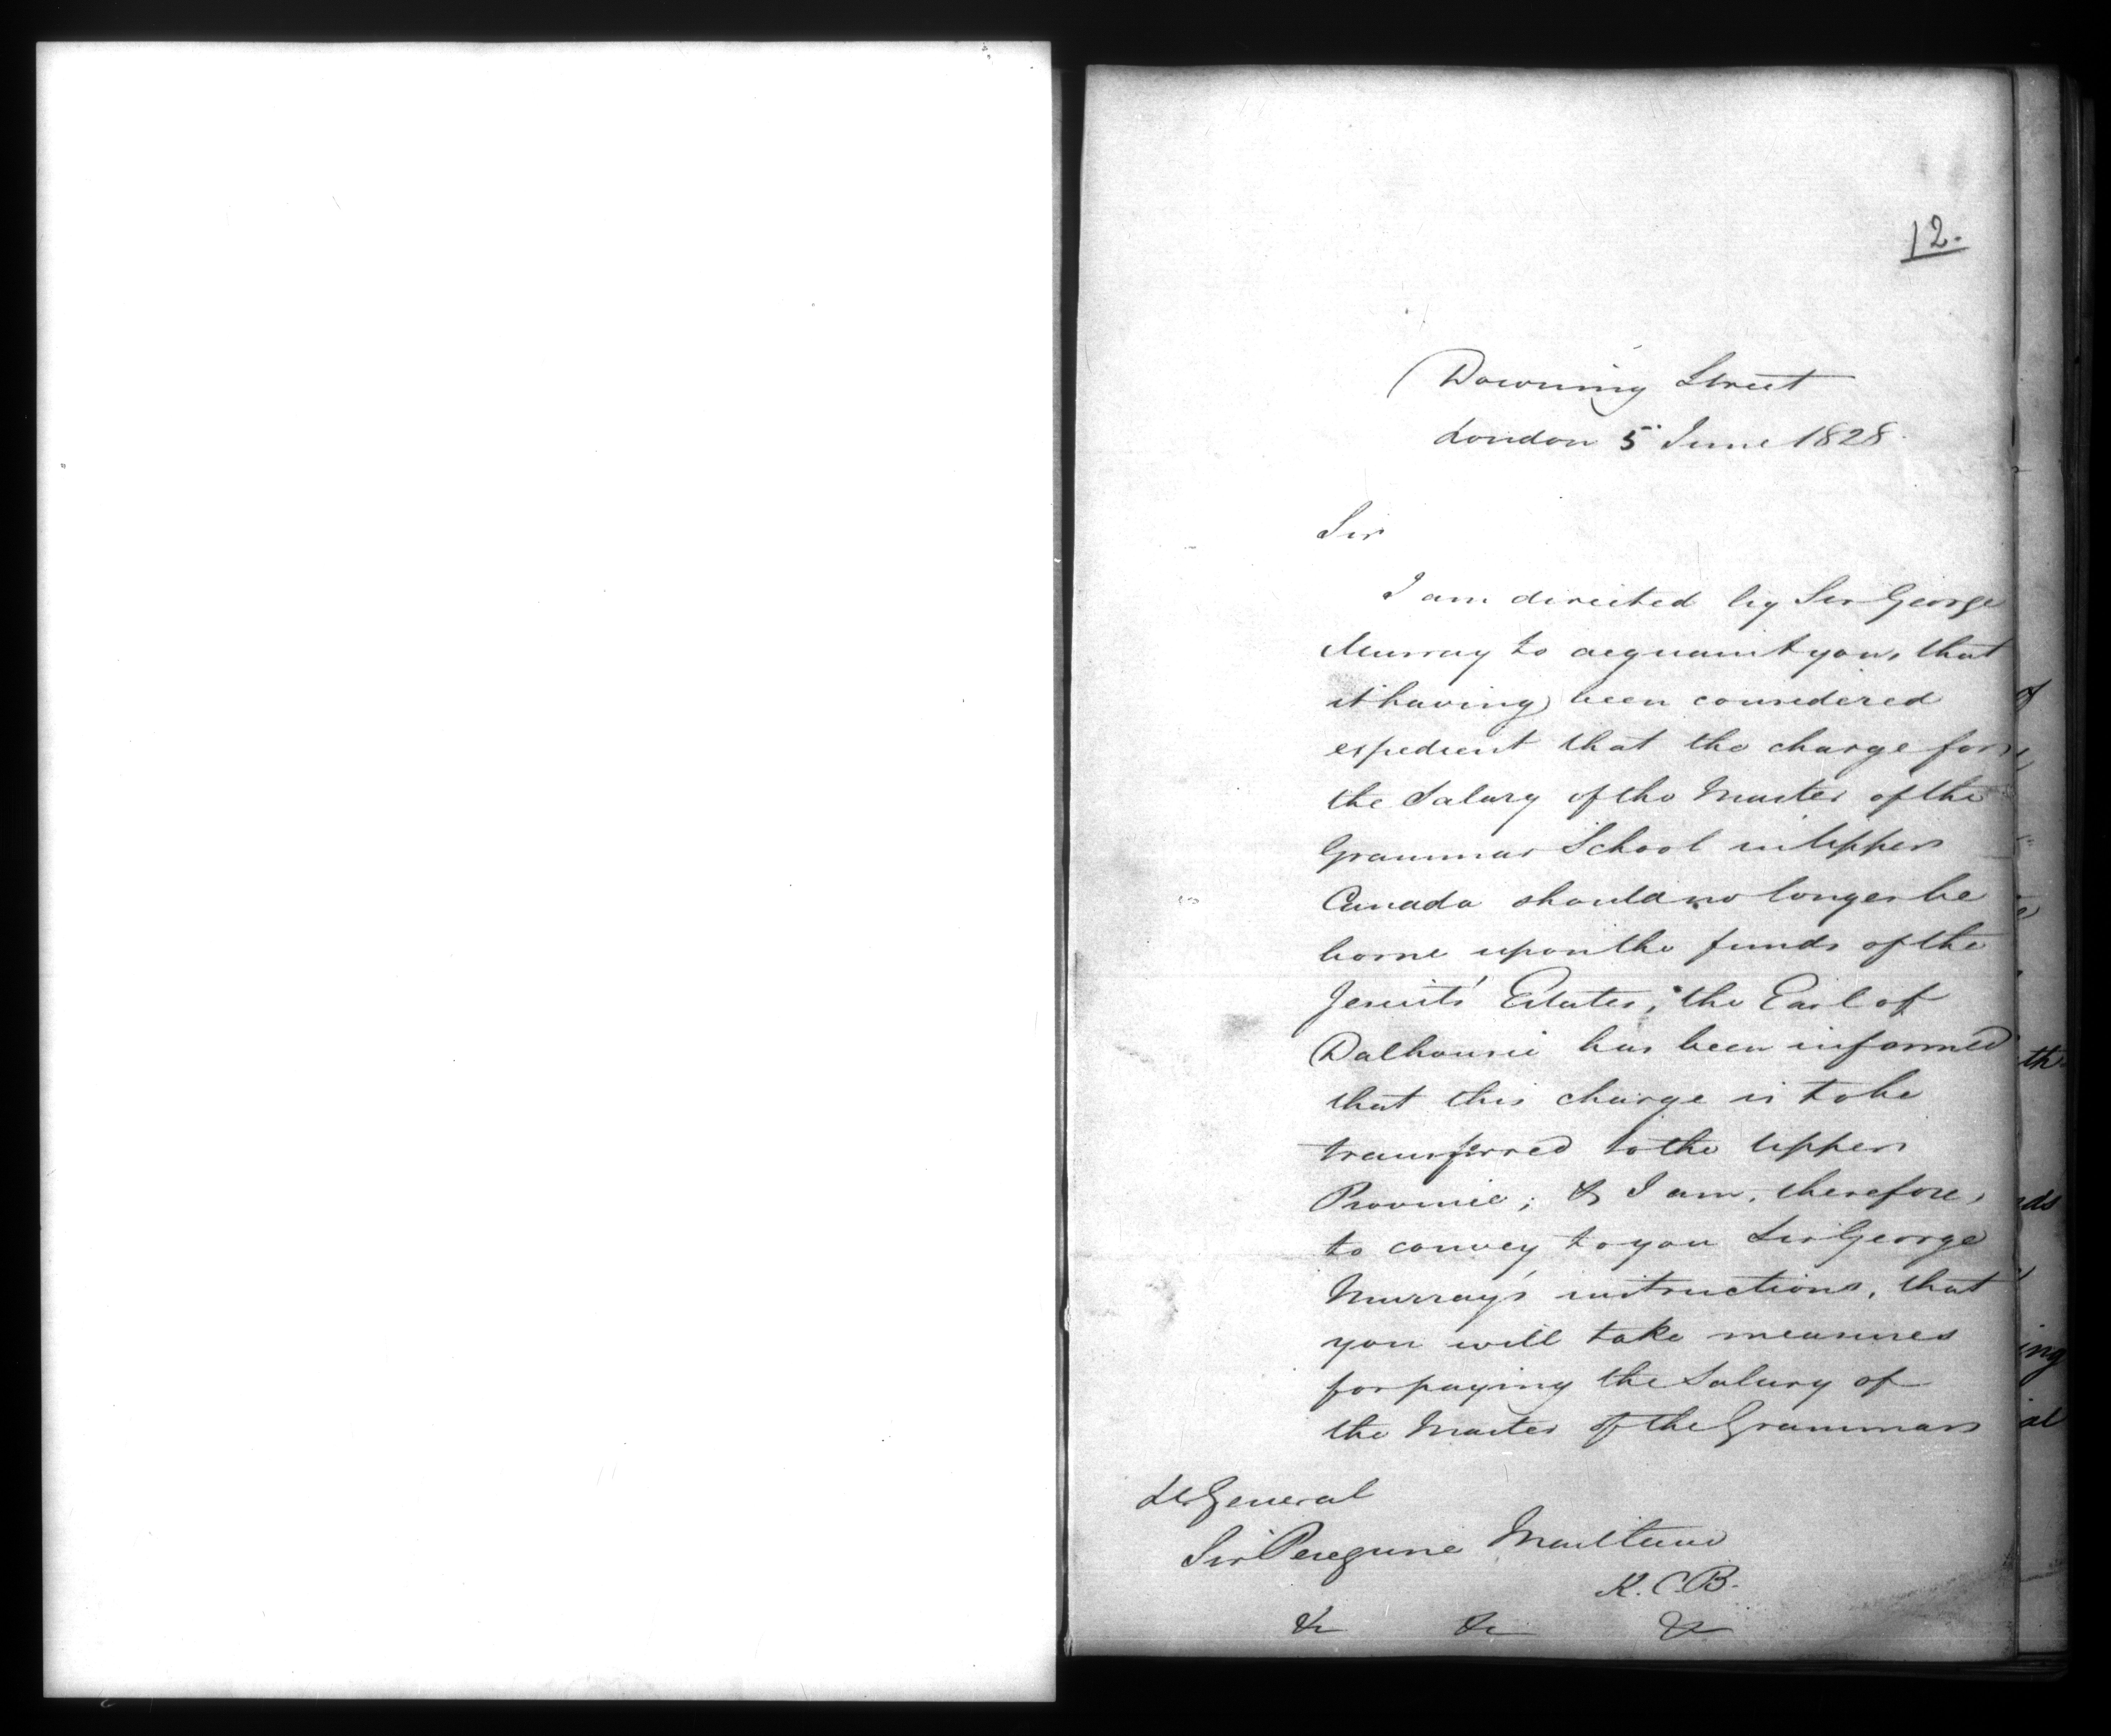 12.
Downing Street
London 5 June 1828.
Sir
I am directed by Sir George
Murray to acquaint you, that
it having been considered
expedient that the charge for
the Salary of the Master of the
Grammar School in Upper
Canada should no longer be
borne upon the funds of the
Jesuits' Estates; the Earl of
Dalhousie has been informed
that this charge is to be
transferred to the Upper
Province; & I am, therefore,
to convey to you Sir George
Murray's instructions, that
you will take measures
for paying the Salary of
the Master of the Grammar
Lt General
Sir Peregrine Maitland
K.C.B.
&c &c &c